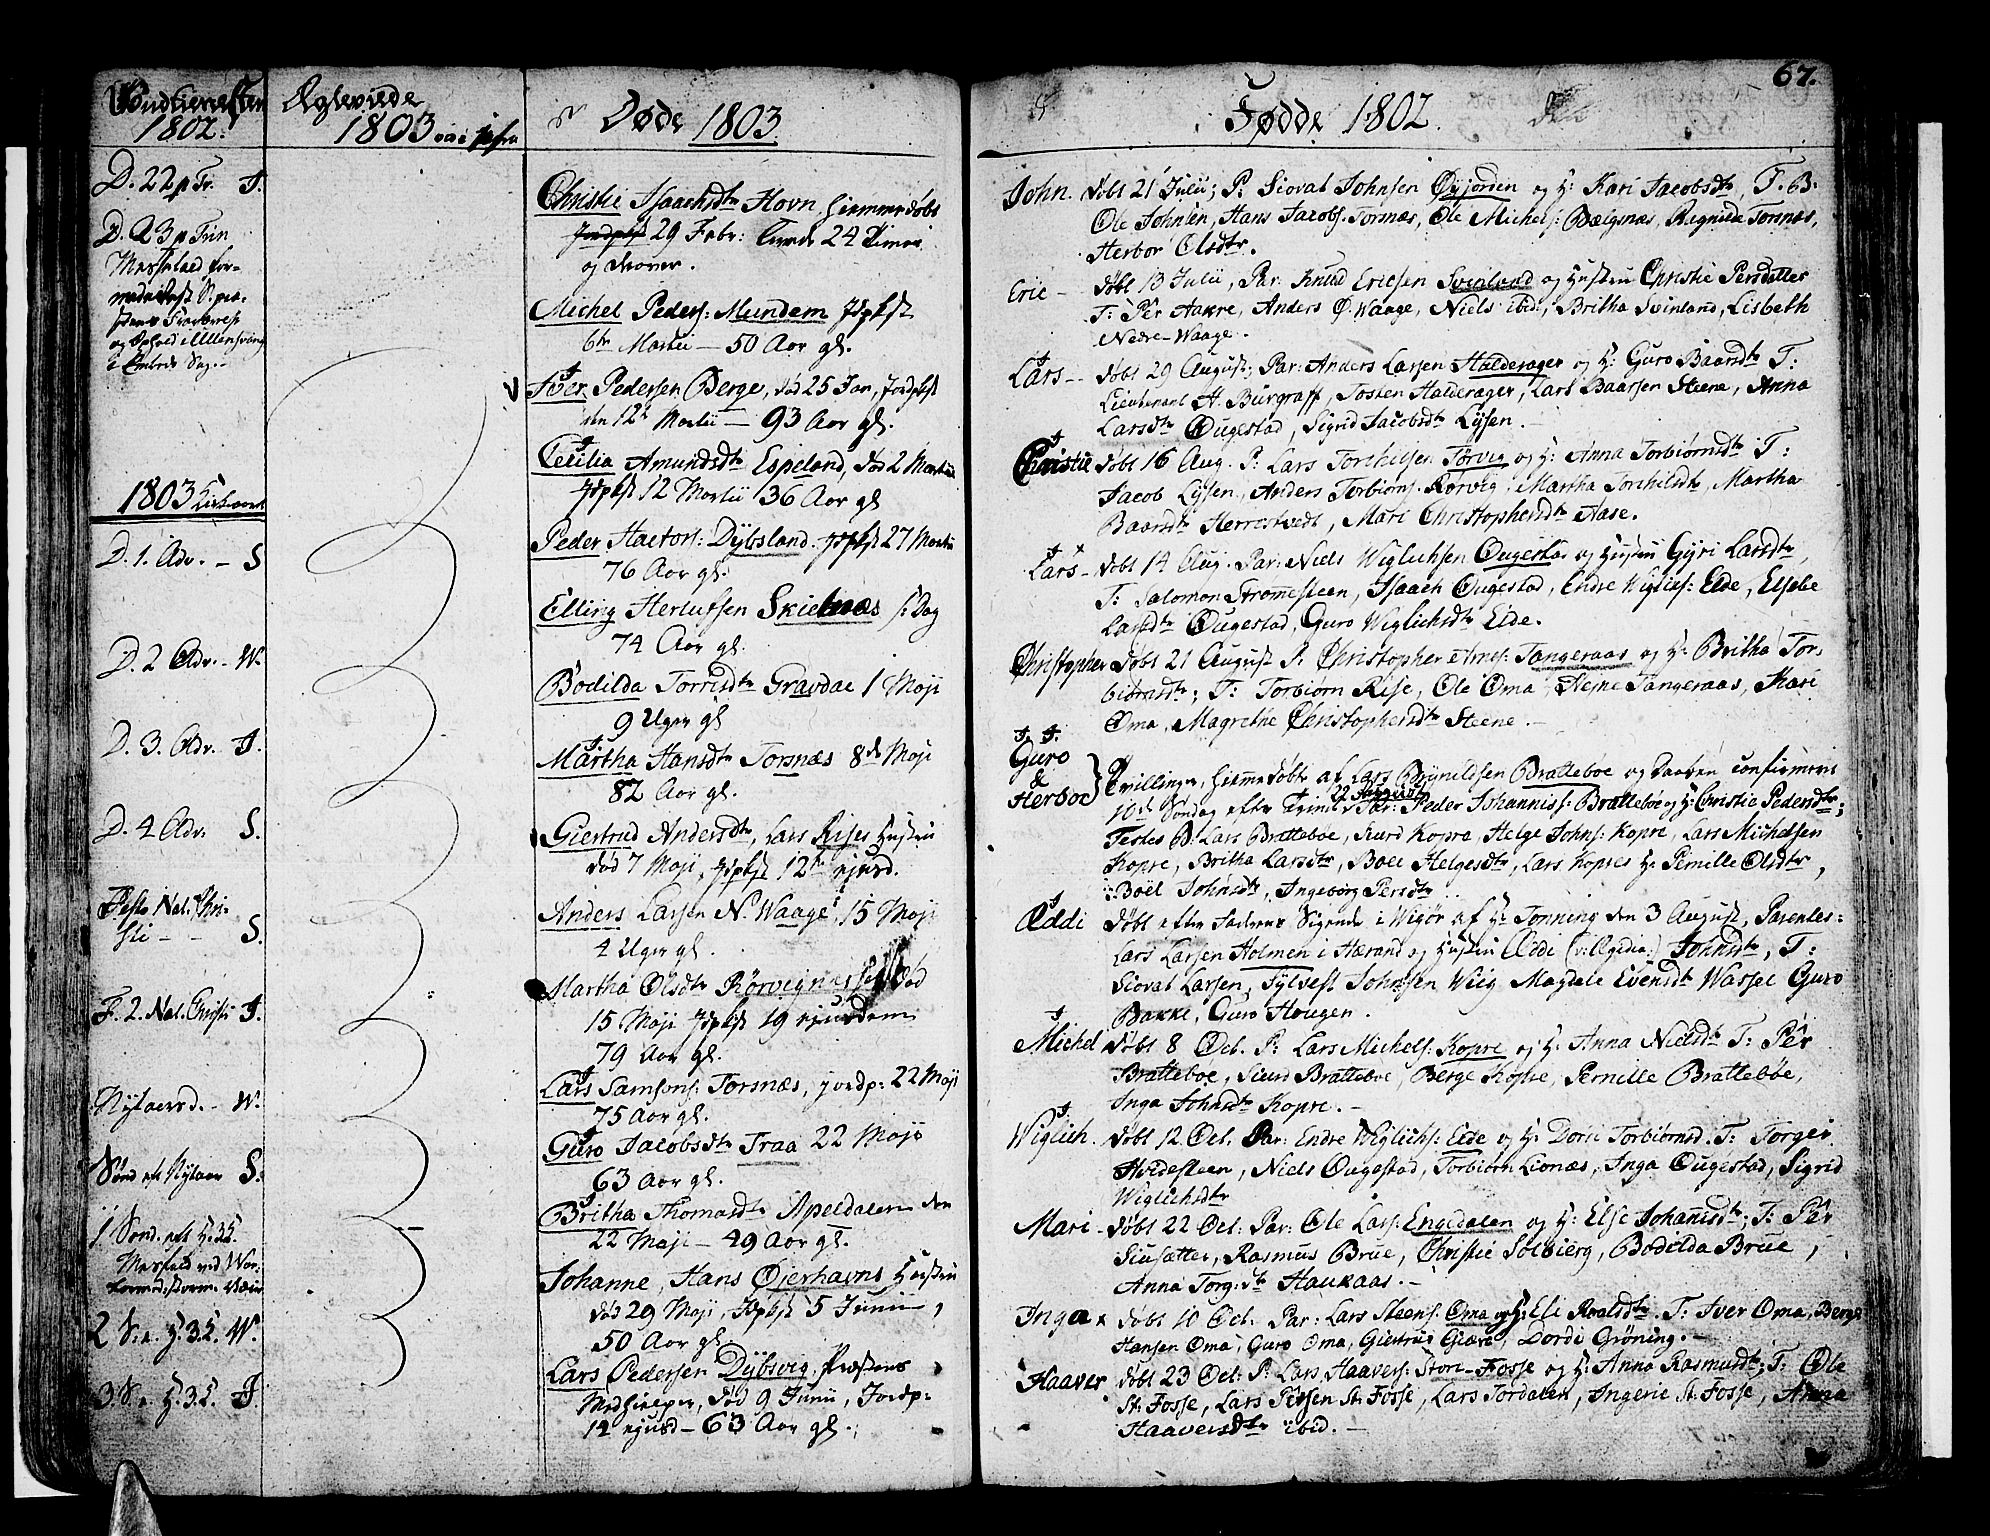 1802.
D. 22 p Tr. J.
D. 23 p Trin
Messefald for-
og Ophold i Ullensvang
i Embeds Sag.-
1803 Kirkeaaret
D. 1. Adv. - S
D. 2 Adv. - W.
D. 3. Adv. J.
D. 4 Adv. S.
Festo Nat. Chri-
sti - - S.
F. 2. Nat. Christi J.
Nytaarsd. - W.
Sønd eft Nytaar S.
1 Sønd. eft H.3K.
Messefald ved
2 S. e. H.3K. W.
3 S. e. H.3K. J.
Ægteviede
1803
Døde 1803
Christie Isaachsdtr Hovn hiemmedøbt
29 Febr: levede 24 Timer
og derover.
Michel Peders: Mundem Jdpkst
6te Martii - 50 Aar gl.
Iver Pedersen Berge, død 25 Jan, Jordpkst
den 12te Martii - 93 Aar gl.
Cecilia Amundsdtr Espeland, død 2 Martii
Jdpkst 12 Martii 36 Aar gl
Peder Hactors: Dybsland Jdpkst 27 Martii
76 Aar gl.
Elling Herlufsen Skielnæs s: Dag
74 Aar gl.
Bodilda Torrisdtr Gravdal 1 Maji
9 Uger gl
Martha Hansdtr Torsnæs 8de Maji
82 Aar gl.
Giertrud Andersdtr, Lars Rises Hustru
død 7 Maji, Jdpkst 12te ejusd.
Anders Larsen N. Waage, 15 Maji
4 Uger gl.
Martha Olsdtr Rörvignæsset død
15 Maji Jdpkst 19 ejusdem
79 Aar gl.
Lars Samsons: Torsnæs, jordp: 22 Maji
75 Aar gl.
Guro Jacobsdtr Traa 22 Maji
63 Aar gl.
Britha Thomasdtr Apeldalen den
22 Maji - 49 Aar gl.
Johanne, Hans Øierhavns Hustru
død 29 Maji, Jdpkst 5 Junii,
50 Aar gl.
Lars Pedersen Dybsvig, Præstens
Medhielper, død 9 Junii, Jordp:
14 ejusd - 63 Aar gl.
67.
Fødde 1802.
John. døbt 21 Julii; P: Siovat Johnsen Øyjorden og H: Kari Jacobsdtr T. B:
Ole Johnsen, Hans Jacobs: Torsnæs, Ole Michels: Bælgsnæs, Ragnilde Torsnæs,
Herbor Olsdtr.
Eric - døbt 13 Julii, Par. Knud Ericsen Svinland og Hustru Christie Persdatter
T: Per Aakre, Anders Ø. Waage, Niels ibid; Britha Svinland, Lisbeth
Nedre-Waage.
Lars - døbt 29 August, Par: Anders Larsen Halderager og H: Guro Baarsdtr T:
Lieutenant H. Bürgraff, Tosten Halderager, Lars Baarsen Steene, Anna
Larsdtr Ougestad, Sigrid Jacobsdtr Lysen.-
Christie døbt 16 Aug. P: Lars Torchilsen Törvig og H: Anna Torbiörnsdtr T:
Jacob Lysen, Anders Torbiörns: Rörvig, Martha Torchilsdtr, Martha
Baarsdtr Herrestvedt, Mari Christophersdtr Aase.
Lars - døbt 14 Aug. Par: Niels Wiglichsen Ougestad og Hustru Gyri Larsdtr
T: Salomon Strømesteen, Isaach Ougestad, Endre Wiglics: Eide, Elsebe
Larsdtr Ougestad, Guro Wiglichsdtr Eide.
Christopher døbt 21 August P. Christopher Arnes: Tangeraas og H: Britha Tor-
biörnsdtr; T: Torbiörn Rise, Ole Oma, Steine Tangeraas, Kari
Oma, Magrethe Christophersdtr Steene.-
Guro
&
Herbor } Tvillinger, hiemmedøbte af Lars Bryneldsen Bratteboe og Daaben confirmeret
10de Søndag efter Trinit: 22 August Par: Peder Johanniss: Bratteböe og H: Christie Pedersdtr;
Testes B: Lars Bratteboe, Siurd Kopre, Helge Johns: Kopre, Lars Michelsen
Kopre, Britha Larsdtr, Boel Helgesdtr, Lars Kopres H: Pernille Olsdtr,
Böel Johnsdtr, Ingebörg Persdtr
Æddi døbt efter Faderens Sigende i Wigör af Hr Tonning den 3 August, Parentes:
Lars Larsen Holmen i Harand og Hustru Ædde (: Ægedia:) Johnsdtr, T:
Siovat Larsen, Sylvest Johnsen Wiig Magdele Evensdtr Wassel Guro
Bakke, Guro Hougen.
Michel døbt 8 Oct. P: Lars Michels: Kopre og H: Anna Nielsdtr T: Per
Bratteboe, Siurd Bratteboe, Berge Kopre, Pernille Bratteböe,
Inga Johnsdtr Kopre.-
Wiglich. døbt 12 Oct. Par: Endre Wiglichs: Eide og H: Dorti Torbiörnsd. T: Torger
Hvidesteen, Niels Ougestad, Torbiörn Lionæs, Inga Ougestad, Sigrid
Wiglichsdtr
Mari - døbt 22 Oct: Par: Ole Lars: Engedalen og H: Else Johanisdtr; T: Per
Siusætter, Rasmus Brue, Christie Solbierg, Bodilda Brue,
Anna Torg:dtr Haukaas.-
Inga x døbt 10 Oct. Par: Lars Steens: Oma og H: Eli Roalsdtr. T: Iver Oma, Berge
Hansen Oma, Guro Oma, Giertrud Giære, Dordi Gröning.-
Haaver døbt 23 Oct: P. Lars Haavers: Stor-Fosse og H: Anna Rasmusdtr; T: Ole
St: Fosse, Lars Persen St: Fosse, Lars Tordalen, Ingerie St: Fosse, Anna
Haaversdtr ibid.-